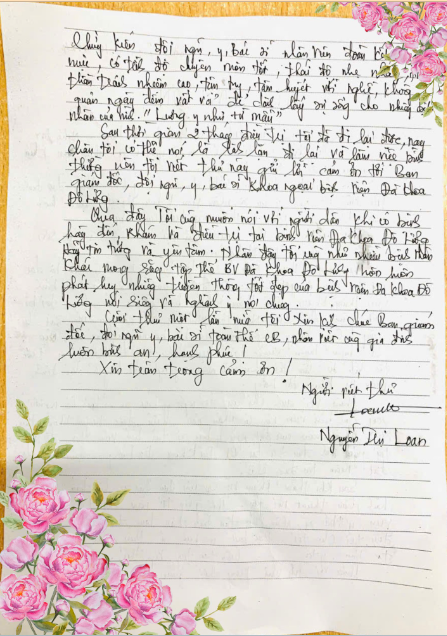 Chứng kiến đội ngũ, y, bác sĩ nhân viên đoàn kết
nức, có trình độ chuyên môn tốt, thái độ nhẹ nhàng
tinh thần trách nhiệm cao, tận tụy, tâm huyết với nghề, không
quản ngày đêm vất vả để dành lấy sự sống cho những bệnh
nhân của mình. "Lương y như từ mẫu"
Sau thời gian 2 tháng điều trị tôi đã đi lại được, nay
chân tôi có thể nói là đã lành đi lại và làm việc bình
thường nên tôi viết thư này gửi lời cảm ơn tới Ban
giám đốc, đội ngũ, y, bác sĩ khoa ngoại bệnh viện Đa khoa
Đô Lương.
Qua đây Tôi cũng muốn nói với người dân khi có bệnh
hãy đến khám và điều trị tại bệnh viện Đa Khoa Đô Lương
hãy tin tưởng và yên tâm. Nhân đây tôi cũng như nhiều bệnh nhân
khác mong rằng tập thể BV Đa khoa Đô Lương luôn luôn
phát huy những truyền thống tốt đẹp của bệnh viện Đa khoa Đô
Lương nói riêng và nghành y nói chung.
Cuối thư một lần nữa tôi xin kính chúc Ban giám
đốc, đội ngũ y, bác sĩ toàn thể CB, nhân viên cùng gia đình
luôn bình an!, hạnh phúc!
Xin trân trọng cảm ơn!
Người viết thư
Loan
Nguyễn Thị Loan